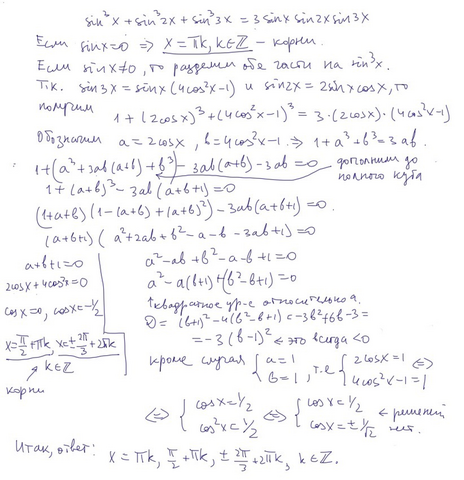 sin³x + sin³2x + sin³3x = 3 sinx sin2x sin3x
Если sinx=0 ⇒ x=πk, k∈ℤ – корни.
Если sinx≠0, то разделим обе части на sin³x.
Т.к. sin3x = sinx(4cos²x-1) и sin2x=2sinxcosx, то
получим 1+(2cosx)³+(4cos²x-1)³ = 3·(2cosx)·(4cos²x-1)
Обозначим a=2cosx, b=4cos²x-1 ⇒ 1+a³+b³=3ab.
1+(a³+3ab(a+b)+b³)-3ab(a+b)-3ab=0
дополним до
полного куба
1+(a+b)³-3ab(a+b+1)=0
(1+a+b)(1-(a+b)+(a+b)²)-3ab(a+b+1)=0.
(a+b+1)(a²+2ab+b²-a-b-3ab+1)=0
a+b+1=0
2cosx+4cos²x=0
cosx=0, cosx=-1/2
x=π/2+πk, x=±2π/3+2πk
k∈ℤ
корни
a²-ab+b²-a-b+1=0
a²-a(b+1)+(b²-b+1)=0
↑квадратное ур-е относительно a.
D=(b+1)²-4(b²-b+1)=-3b²+6b-3=
=-3(b-1)² ← это всегда <0
кроме случая { a=1 b=1, т.е { 2cosx=1 4cos²x-1=1 ⇔
⇔ { cosx=1/2 cos²x=1/2 ⇔ { cosx=1/2 cosx=±1/√2 ← решений нет.
Итак, ответ: x=πk, π/2+πk, ±2π/3+2πk, k∈ℤ.